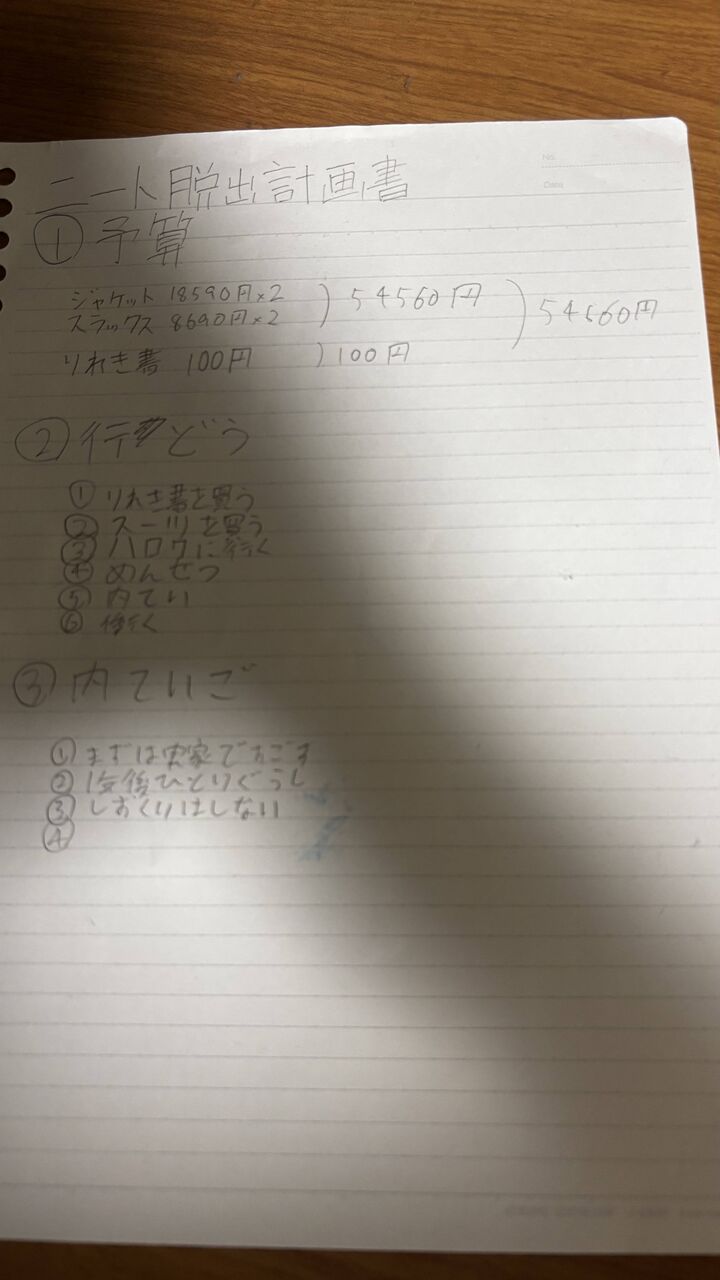 No.
Date
ニート脱出計画書
① 予算
ジャケット 18590円×2 ) 54560円 ) 54660円
スラックス 8690円×2
りれき書 100円 ) 100円
② 行どう
① りれき書を買う
② スーツを買う
③ ハロワに行く
④ めんせつ
⑤ 内てい
⑥ 働く
③ 内ていご
① まずは実家ですごす
② 1年後ひとりぐらし
③ しおくりはしない
④